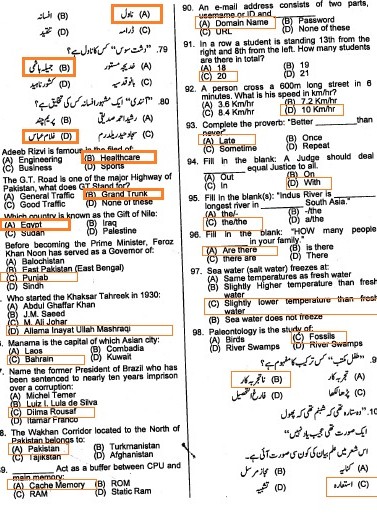 (A) ناول (B) افسانہ
(C) ڈرامہ (D) تنقید
79. "دشت سوس" کس کا ناول ہے؟
(A) خدیجہ مستور (B) جمیلہ ہاشمی
(C) بانو قدسیہ (D) کشور ناہید
80. "آنندی" ایک مشہور افسانہ کس کی تخلیق ہے؟
(A) رشید احمد صدیقی (B) پریم چند
(C) سجاد حیدر یلدرم (D) غلام عباس
Adeeb Rizvi is famous in the filed of:
(A) Engineering (B) Healthcare
(C) Business (D) Sports
The G.T. Road is one of the major Highway of
Pakistan, what does GT Stand for?
(A) General Traffic (B) Grand Trunk
(C) Good Traffic (D) None of these
Which country is known as the Gift of Nile:
(A) Egypt (B) Iraq
(C) Sudan (D) Palestine
Before becoming the Prime Minister, Feroz
Khan Noon has served as a Governor of:
(A) Balochistan
(B) East Pakistan (East Bengal)
(C) Punjab
(D) Sindh
Who started the Khaksar Tahreek in 1930:
(A) Abdul Ghaffar Khan
(B) J.M. Saeed
(C) M. Ali Johar
(D) Allama Inayat Ullah Mashraqi
Manama is the capital of which Asian city:
(A) Laos (B) Combadia
(C) Bahrain (D) Kuwait
Name the former President of Brazil who has
been sentenced to nearly ten years imprison
over a corruption:
(A) Michel Temer
(B) Luiz I. Lula de Silva
(C) Dilma Rousaf
(D) Itamar Franco
8. The Wakhan Corridor located to the North of
Pakistan belongs to:
(A) Pakistan (B) Turkmanistan
(C) Tajikstan (D) Afghanistan
89. ____ Act as a buffer between CPU and
main memory:
(A) Cache Memory (B) ROM
(C) RAM (D) Static Ram
90. An e-mail address consists of two parts,
username or ID and ____
(A) Domain Name (B) Password
(C) URL (D) None of these
91. In a row a student is standing 13th from the
right and 8th from the left. How many students
are there in total?
(A) 18 (B) 19
(C) 20 (D) 21
92. A person cross a 600m long street in 6
minutes. What is his speed in km/hr?
(A) 3.6 Km/hr (B) 7.2 Km/hr
(C) 8.4 Km/hr (D) 10 Km/hr
93. Complete the proverb: "Better ____than
never"
(A) Late (B) Once
(C) Sometime (D) Repeat
94. Fill in the blank: A Judge should deal
____ equal Justice to all.
(A) Out (B) On
(C) In (D) With
95. Fill in the blank(s): "Indus River is ____
longest river in ____ South Asia."
(A) the/- (B) -/the
(C) the/the (D) a/the
96. Fill in the blank: "HOW many people
____ in your family."
(A) Are there (B) is there
(C) there are (D) There
97. Sea water (salt water) freezes at:
(A) Same temperatures as fresh water
(B) Slightly Higher temperature than fresh
water
(C) Slightly lower temperature than fresh
water
(B) Sea water does not freeze
98. Paleontology is the study of:
(A) Birds (C) Fossils
(D) River Swamps (D) River Swamps
"طفل مکتب" کس ترکیب کا مفہوم ہے؟
(A) تجربہ کار (B) ناتجربہ کار
(C) پڑھا لکھا (D) فارغ التحصیل
"وہ ستارہ تھی کہ شبنم تھی کہ پھول
ایک صورت تھی عجب یاد نہیں"
اس شعر میں علم بیان کی کون سی صورت آئی ہے۔
(A) کنایہ (B) مجاز مرسل
(C) استعارہ (D) تشبیہ